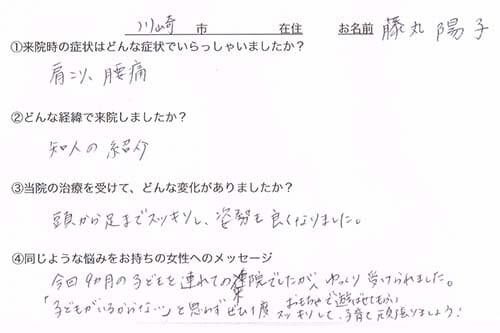 川崎 市 在住 お名前 藤丸 陽子
①来院時の症状はどんな症状でいらっしゃいましたか？
肩こり、腰痛
②どんな経緯で来院しましたか？
知人の紹介
③当院の治療を受けて、どんな変化がありましたか？
頭から足までスッキリし、姿勢も良くなりました。
④同じような悩みをお持ちの女性へのメッセージ
今回 9ヵ月の子どもを連れての来院でしたが、ゆっくり受けられました。
「子どもがいるからな…」と思わず ぜひ1度 おもちゃで遊ばせてもらい
スッキリして、子育て頑張りましょう！